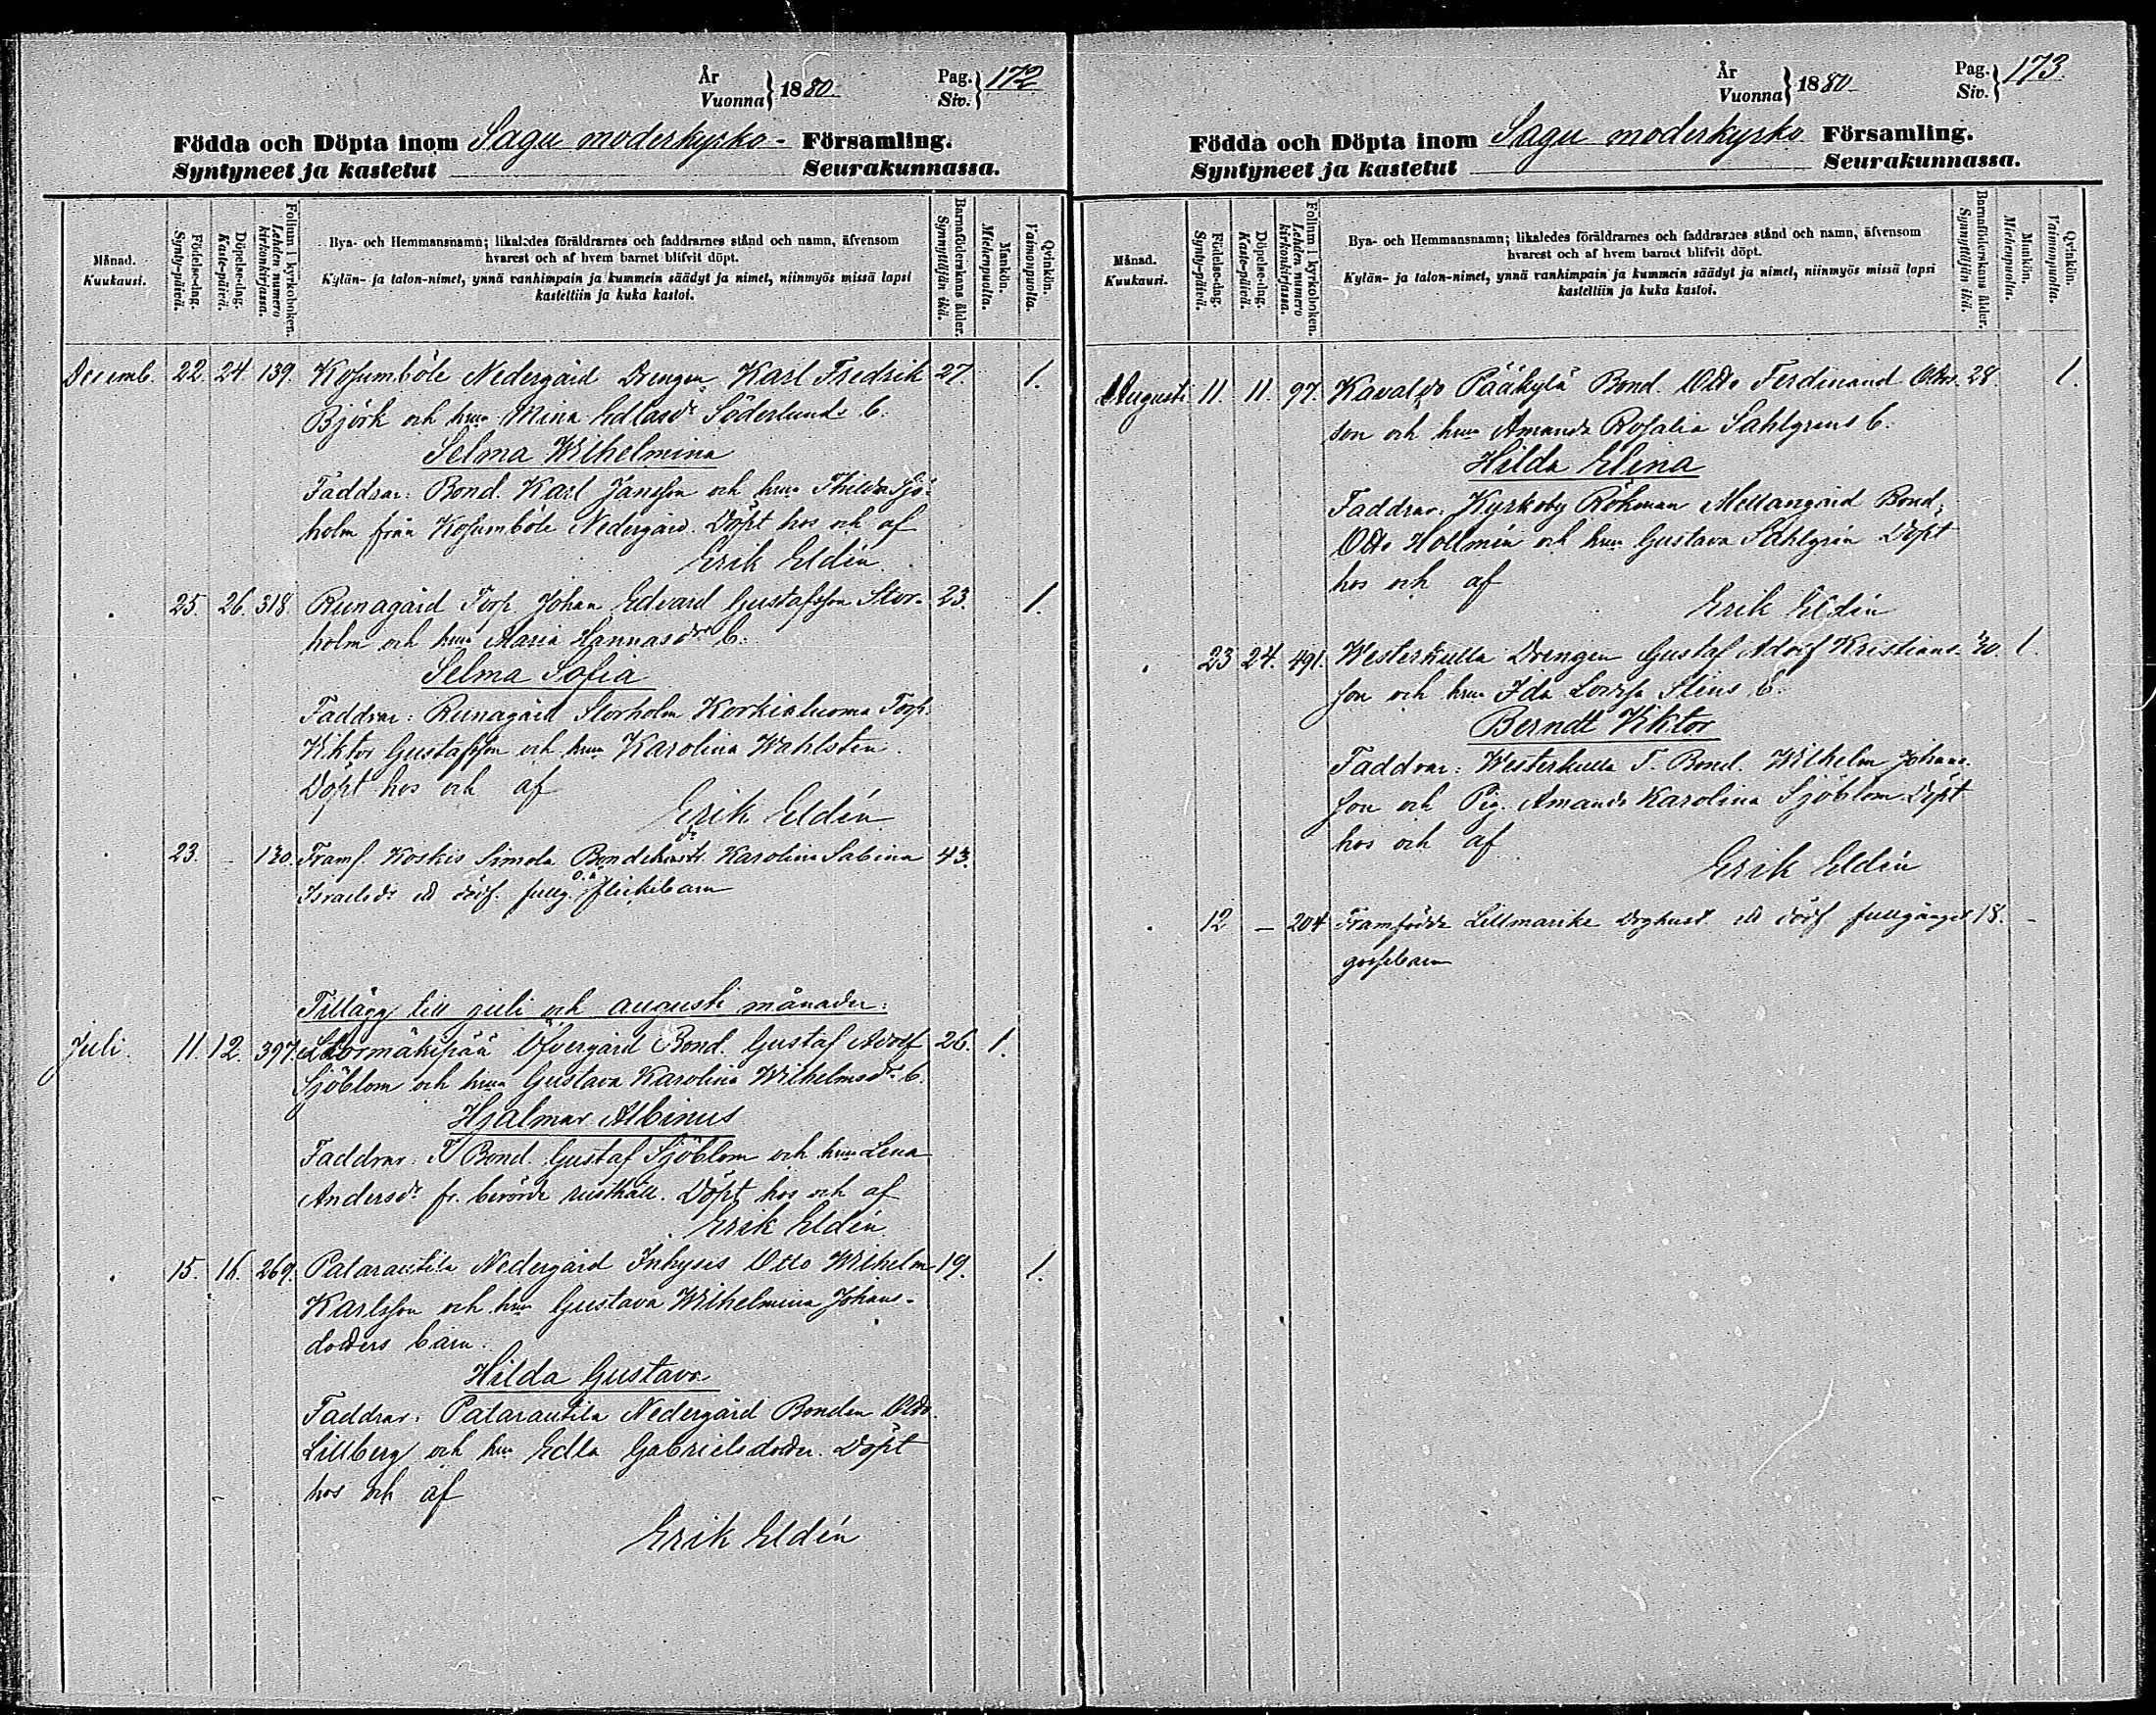 År
Vuonna } 1880.
Pag.
Siv. } 172
Födda och Döpta inom Sagu moderkyrko- Församling.
Syntyneet ja kastetut Seurakunnassa.
Månad.
Kuukausi.
Födelse-dag.
Synty-päivä.
Döpelse-dag.
Kaste-päivä.
Folium i kyrkoboken.
Lehden numero
kirkonkirjassa.
Bya- och Hemmansnamn; likaledes föräldrarnes och faddrarnes stånd och namn, äfvensom
hvarest och af hvem barnet blifvit döpt.
Kylän- ja talon-nimet, ynnä vanhimpain ja kummein säädyt ja nimet, niinmyös missä lapsi
kastettiin ja kuka kastoi.
Barnaföderskans ålder.
Synnyttäjän ikä.
Mankön.
Miehenpuolta.
Qvinkön.
Vaimonpuolta.
Decemb. 22. 24. 139. Kosumböle Nedergård Drengen Karl Fredrik 27. 1.
Björk och hu Mina Edlasdr Söderlunds b.
Selma Wilhelmina
Faddrar: Bond. Karl Jansson och hu Thilda Sjö-
holm från Kosumböle Nedergård. Döpt hos och af
Erik Eldén.
25. 26. 318. Runagård Torp. Johan Edvard Gustafsson Stor- 23. 1.
holm och hu Maria Hannasdrs b.
Selma Sofia
Faddrar: Runagård Storholm Korkialuoma Torp.
Viktor Gustafsson och hu Karolina Wahlsten.
Döpt hos och af
Erik Eldén.
23. - 130. Framf. Koskis Simola Karolina Sabina 43.
Israelsdr ett dödf. fullg. o.ä. flickebarn
Tillägg till juli och augusti månader:
Juli. 11. 12. 397. Stormäkipää Öfvergård Bond. Gustaf Adolf 26. 1.
Sjöblom och hu Gustava Karolina Wilhelmsdrs b.
Hjalmar Albinus
Faddrar: F. Bond. Gustaf Sjöblom och hu Lena
Andersdr fr. berörde rusthåll. Döpt hos och af
Erik Eldén.
15. 16. 269. Patarautila Nedergård Inhyses Otto Wilhelm 19. 1.
Karlsson och hu Gustava Wilhelmina Johans-
dotters barn.
Hilda Gustava
Faddrar: Patarautila Nedergård Bonden Otto
Lillberg och hu Edla Gabrielsdotter. Döpt
hos och af
Erik Eldén
År
Vuonna } 1880.
Pag.
Siv. } 173.
Födda och Döpta inom Sagu moderkyrko Församling.
Syntyneet ja kastetut Seurakunnassa.
Månad.
Kuukausi.
Födelse-dag.
Synty-päivä.
Döpelse-dag.
Kaste-päivä.
Folium i kyrkoboken.
Lehden numero
kirkonkirjassa.
Bya- och Hemmansnamn; likaledes föräldrarnes och faddrarnes stånd och namn, äfvensom
hvarest och af hvem barnet blifvit döpt.
Kylän- ja talon-nimet, ynnä vanhimpain ja kummein säädyt ja nimet, niinmyös missä lapsi
kastettiin ja kuka kastoi.
Barnaföderskans ålder.
Synnyttäjän ikä.
Mankön.
Miehenpuolta.
Qvinkön.
Vaimonpuolta.
Augusti 11. 11. 97. Kavaldo Pääkylä Bond. Otto Ferdinand Otto- 28. 1.
son och hu Amanda Rosalia Sahlgrens b.
Hilda Elina
Faddrar: Kyrkoby Rökman Mellangård Bond.
Otto Hollmén och hu Gustava Sahlgrén Döpt
hos och af
Erik Eldén
23 24. 491. Westerkulla Drengen Gustaf Adolf Kristians- 1.
son och hu Ida Lovisa Stens b.
Berndt Viktor
Faddrar: Westerkulla F. Bond. Wilhelm Johans-
son och Pig. Amanda Karolina Sjöblom. Döpt
hos och af
Erik Eldén
12 - 204 Framfödde Lillmarike ett dödf fullgånget 18. -
gossebarn